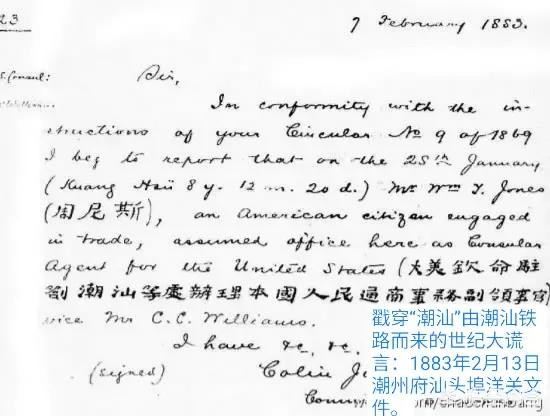 23
7 February 1883.
S. Consul:
Sir,
In conformity with the in-
structions of your Circular No 9 of 1869
I beg to report that on the 28th January
(Kuang Hsü 8 y. 12 m. 20 d.) Mr Wm T. Jones
(周尼斯), an American citizen engaged
in trade, assumed office here as Consular
Agent for the United States (大美欽命駐
劄潮汕等處辦理本國人民通商事務副領事官)
vice Mr C. C. Williams.
I have &c, &c.
(signed) Colin
戳穿“潮汕”由潮汕铁
路而来的世纪大谎
言：1883年2月13日
潮州府汕头埠洋关文
件。